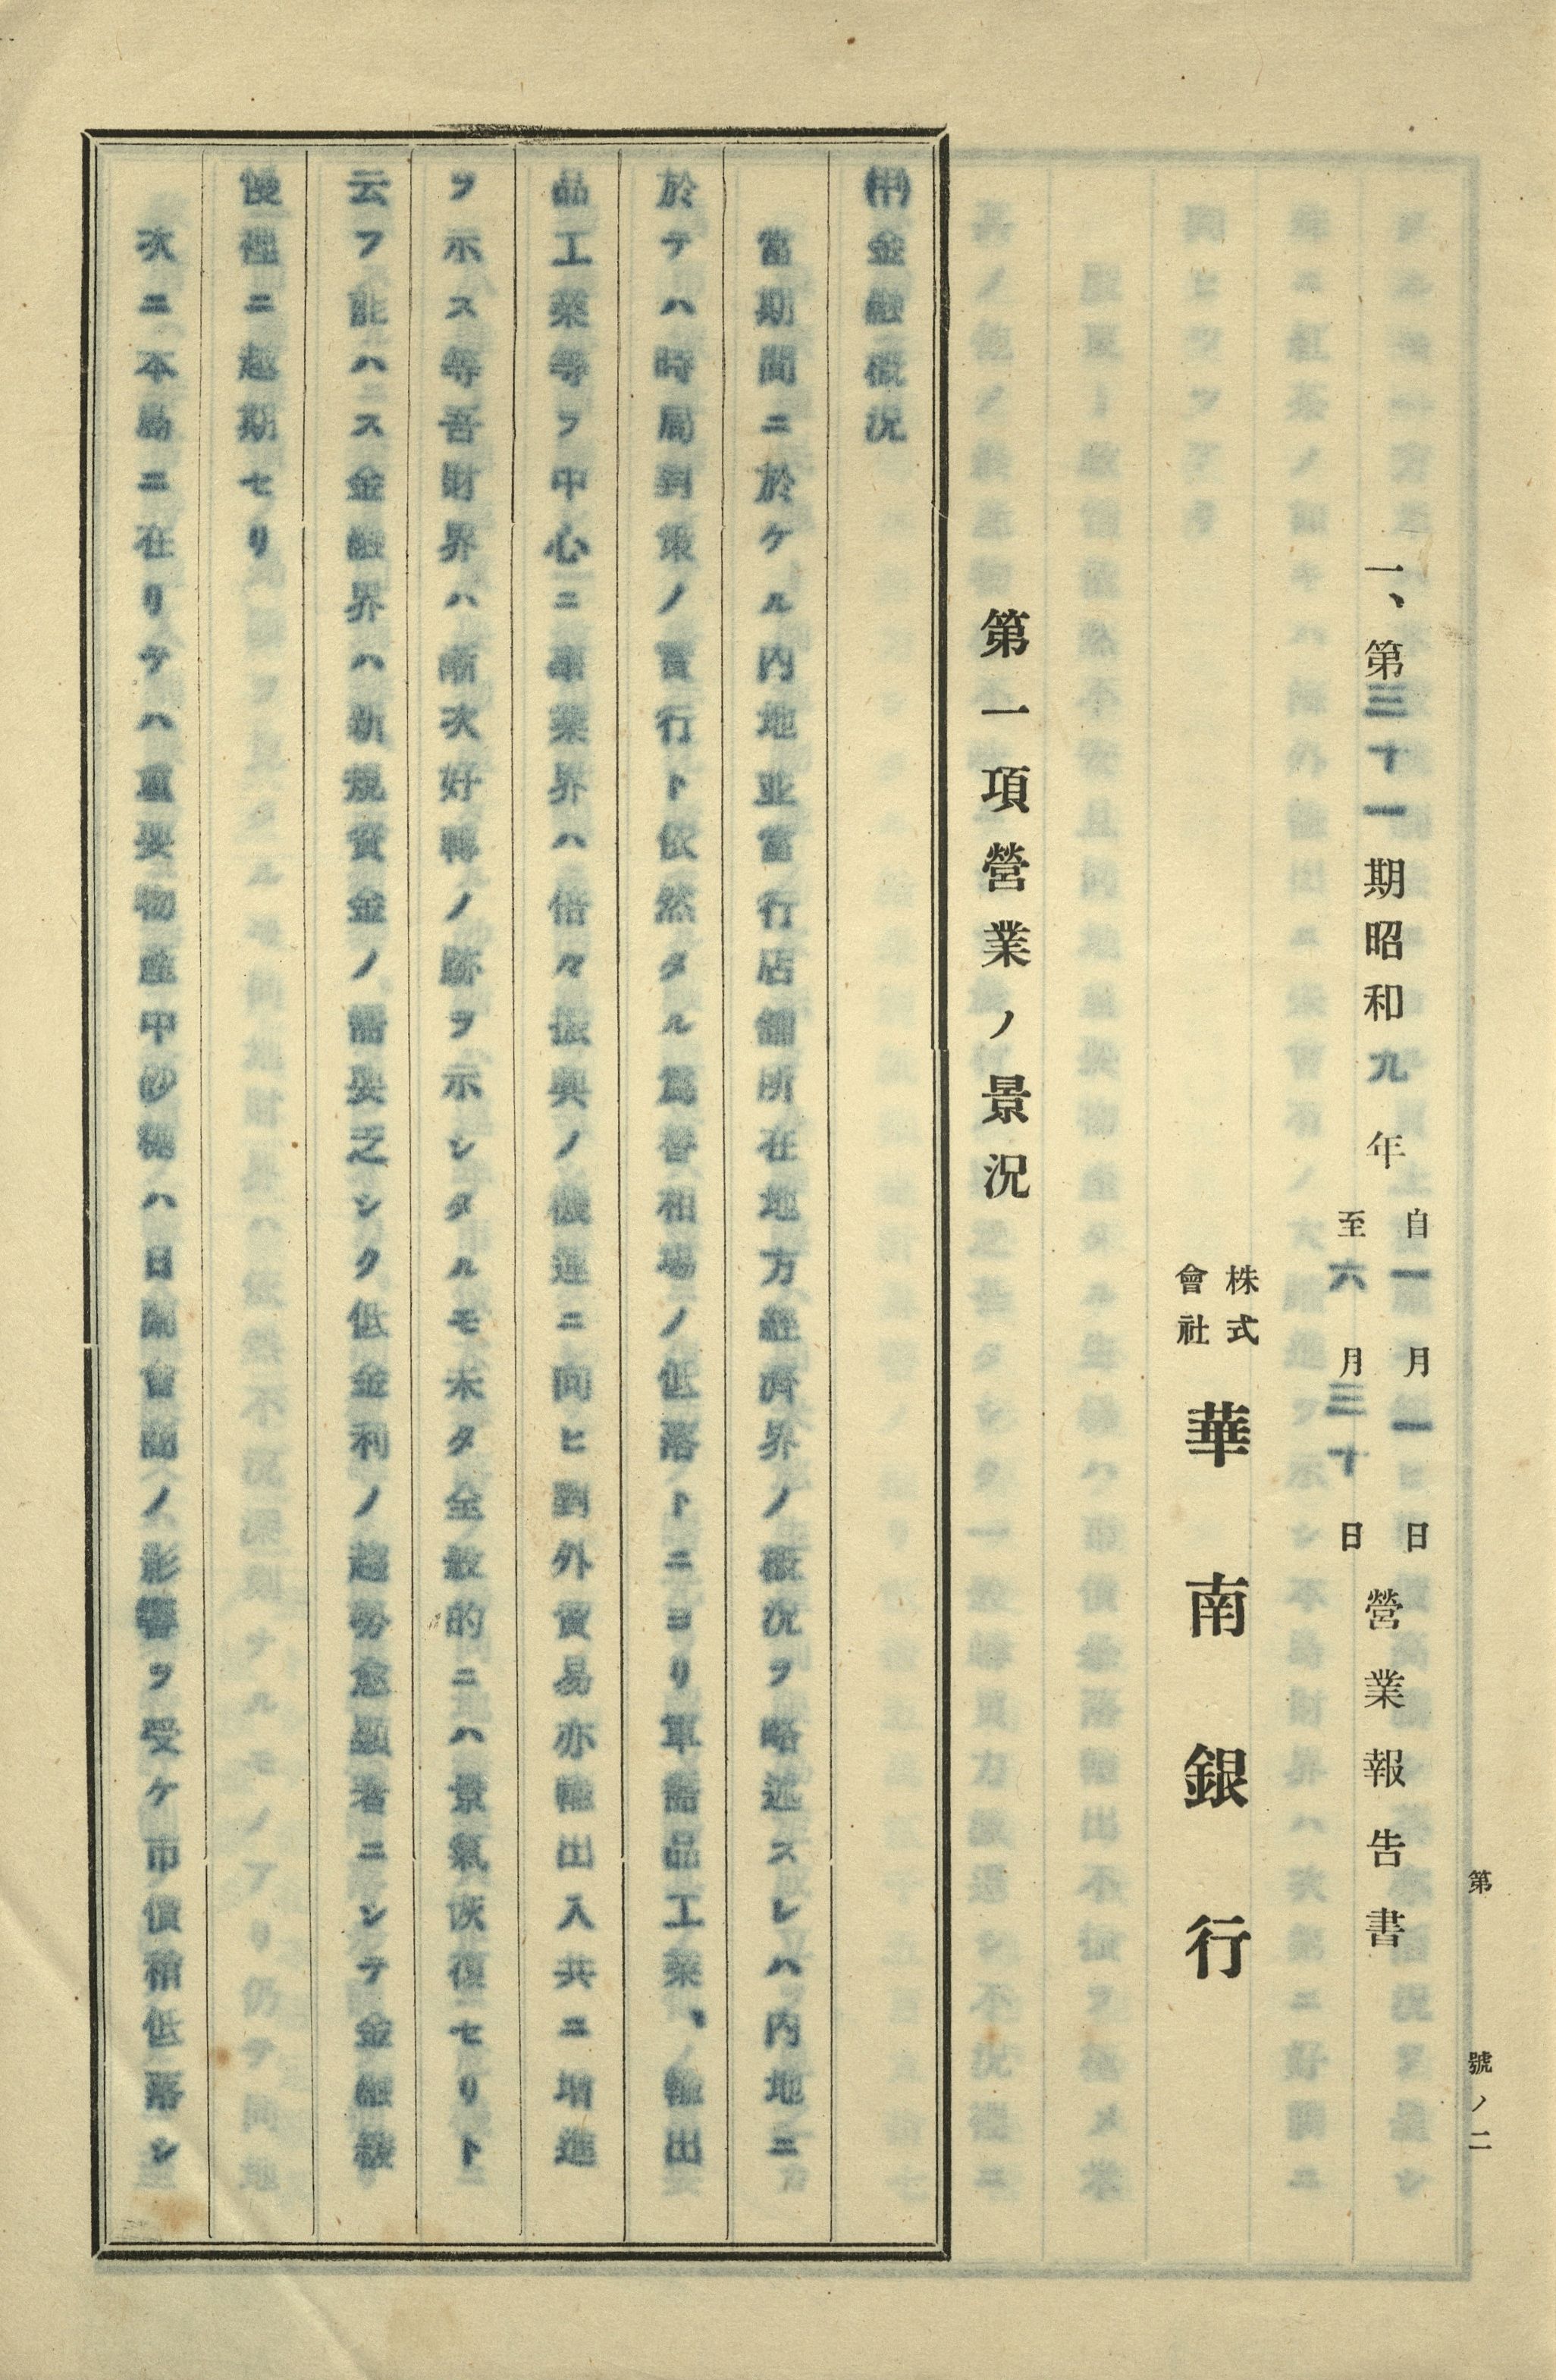 第　號ノ二
一、第三十一期昭和九年自一月一日至六月三十日營業報告書
株式會社華南銀行
第一項營業ノ景況
(甲)金融概況
當期間ニ於ケル内地並當行店舖所在地方經濟界ノ概況ヲ略述スレハ内地ニ
於テハ時局對策ノ實行ト依然タル爲替相場ノ低落トニヨリ軍需品工業、ノ輸出
品工業等ヲ中心ニ事業界ハ倍々振興ノ機運ニ向ヒ對外貿易亦輸出入共ニ増進
ヲ示ス等吾財界ハ漸次好轉ノ跡ヲ示シタルモ未タ全般的ニハ景氣恢復セリト
云フ能ハス金融界ハ新規資金ノ需要乏シク低金利ノ趨勢愈顯著ニシテ金融緩
慢裡ニ越期セリ
次ニ本島ニ在リテハ重要物產中砂糖ハ日蘭會商ノ影響ヲ受ケ市價稍低落シ